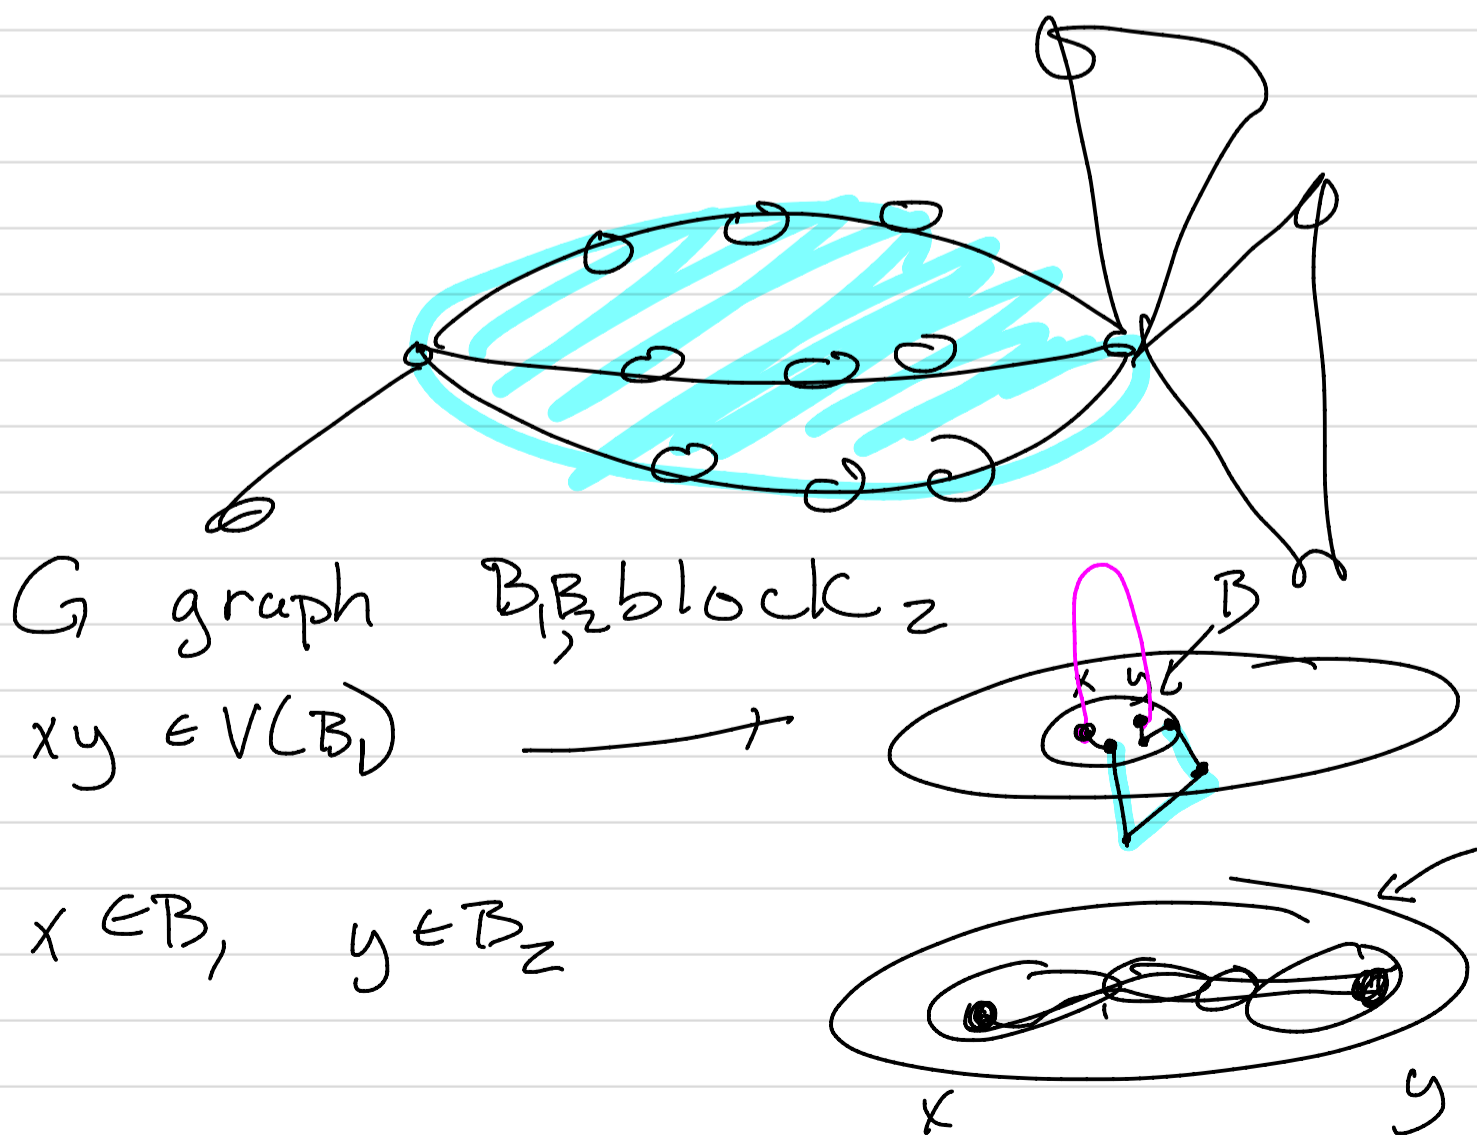 G graph B₁, B₂ block 2
B
xy ∈ V(B₁)
x y
x ∈ B₁ y ∈ B₂
x y